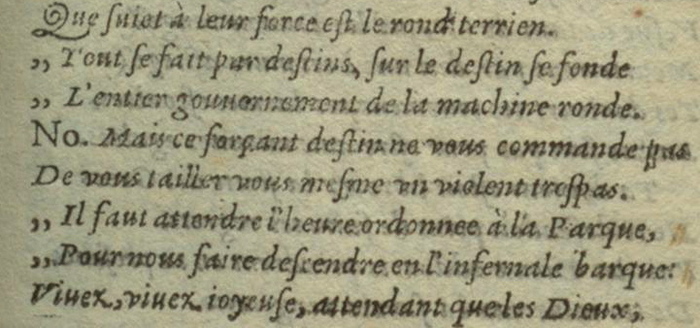 Que suiet à leur force est le rond terrien.
,, Tout se fait par destins, sur le destin se fonde
,, L'entier gouuernement de la machine ronde.
No. Mais ce forçant destin ne vous commande pas
De vous tailler vous mesme vn violent trespas.
,, Il faut attendre l'heure ordonnee à la Parque,
,, Pour nous faire descendre en l'infernale barque:
Viuez, viuez ioyeuse, attendant que les Dieux,